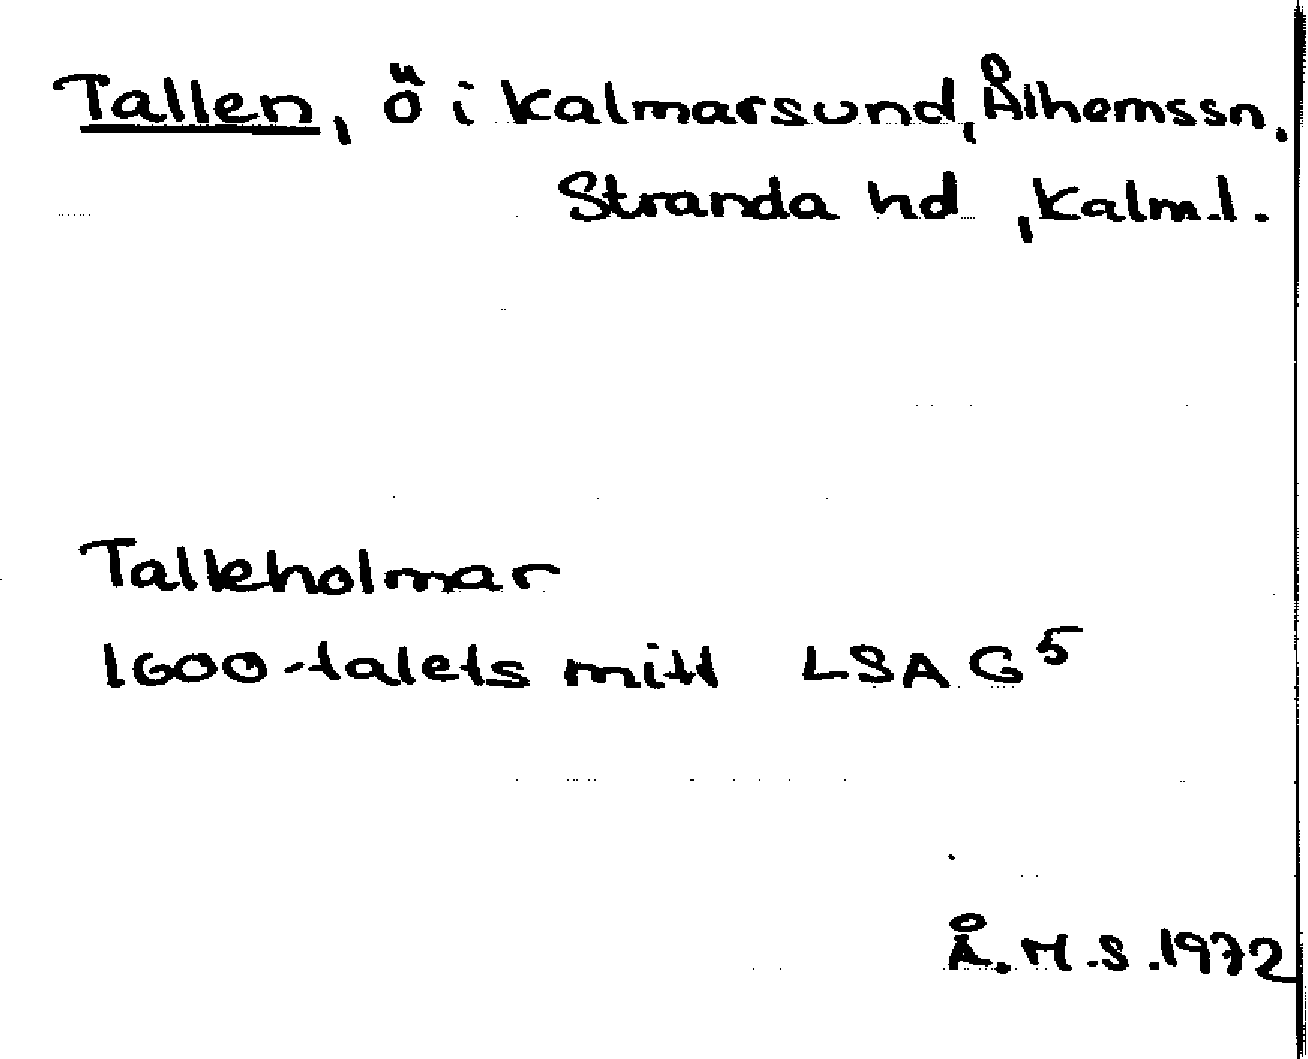 Tallen, ö i Kalmarsund, Ålhemssn.
Stranda hd , Kalm.l.
Talleholmar
1600-talets mitt LSA G⁵
Å.M.S.1972